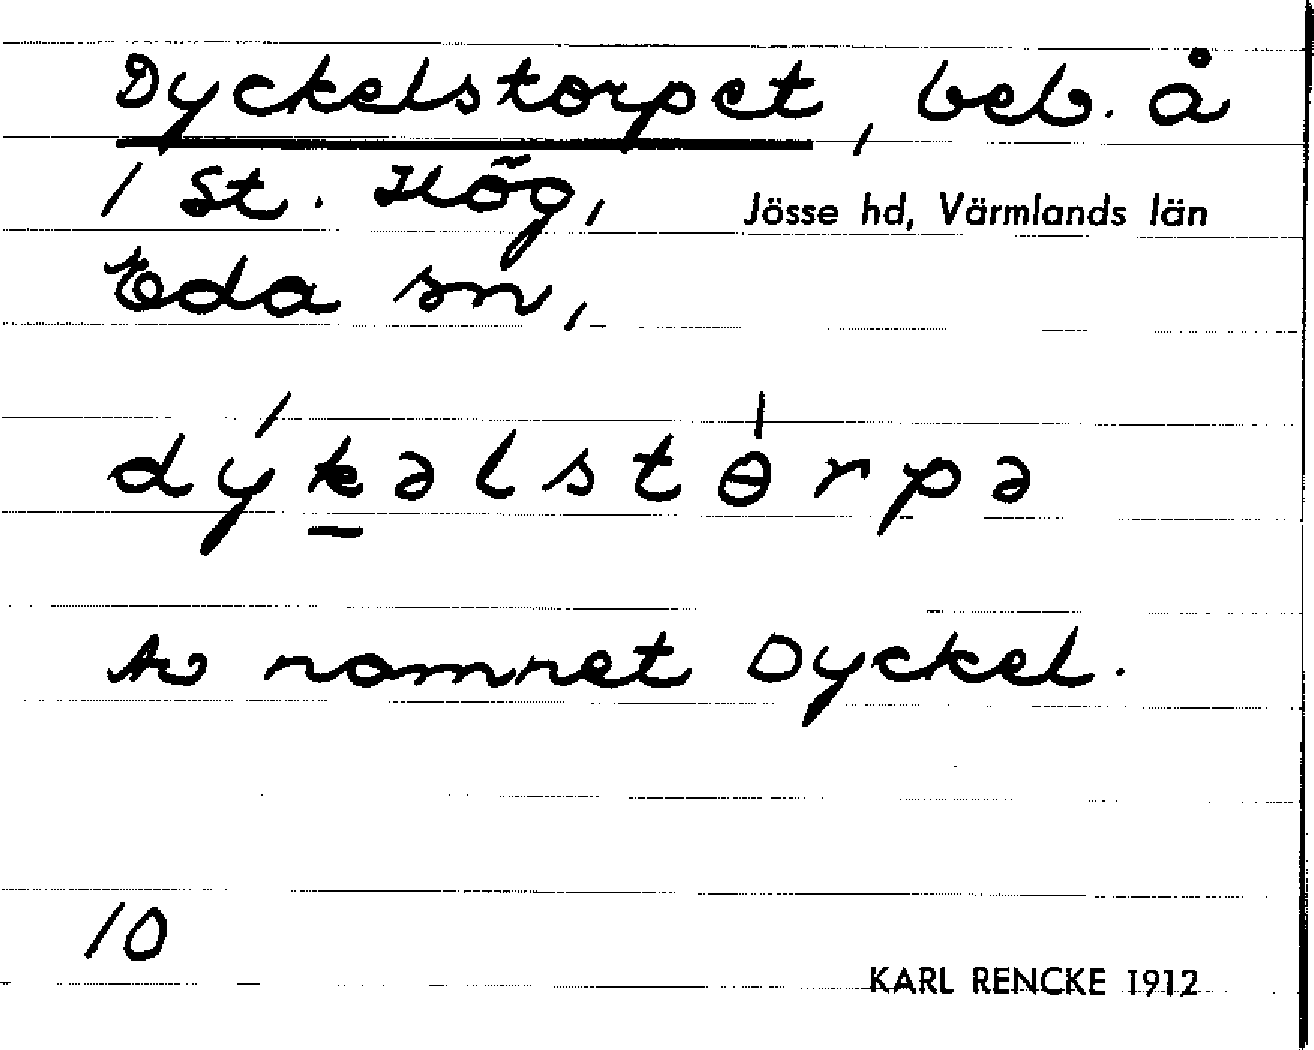 Dyckelstorpet, beb. å
1 St. Hög,
Jösse hd, Värmlands län
Eda sn,
dýkəlstɵ́rpə
Av namnet Dyckel.
10
KARL RENCKE 1912